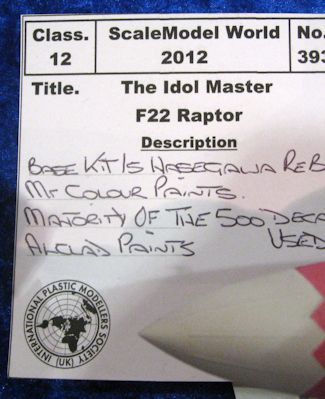 Class. ScaleModel World No.
12 2012 393
Title. The Idol Master
F22 Raptor
Description
BASE KIT IS HASEGAWA REB
MR COLOUR PAINTS.
MAJORITY OF THE 500 DECA
ALCLAD PAINTS USED
INTERNATIONAL PLASTIC MODELLERS SOCIETY (UK)